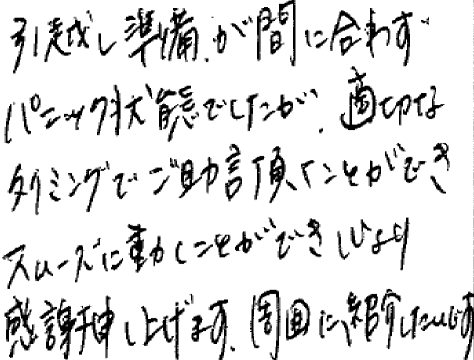 引越し準備が間に合わず
パニック状態でしたが、適切な
タイミングでご助言頂くことができ
スムーズに動くことができ心より
感謝申し上げます。周囲に紹介したいです